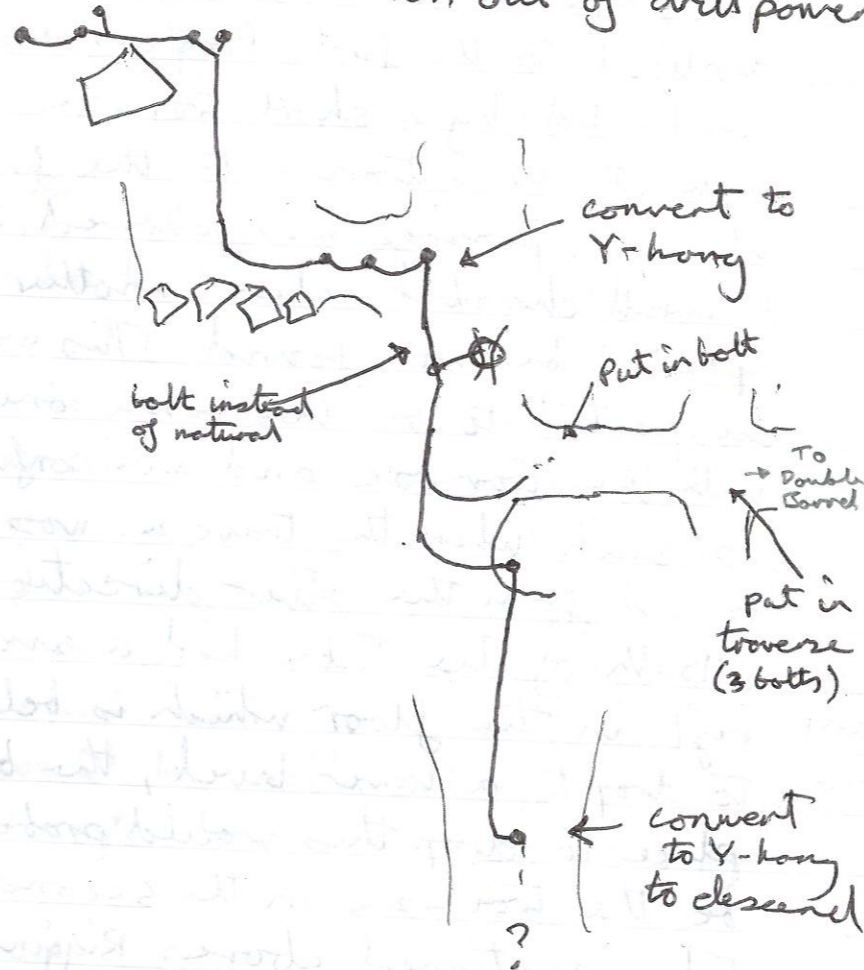 out of drill power
convert to
Y-hang
bolt instead
of natural
Put in bolt
To
→ Double
Barrel
put in
traverse
(3 bolts)
convert
to Y-hang
to descend
?